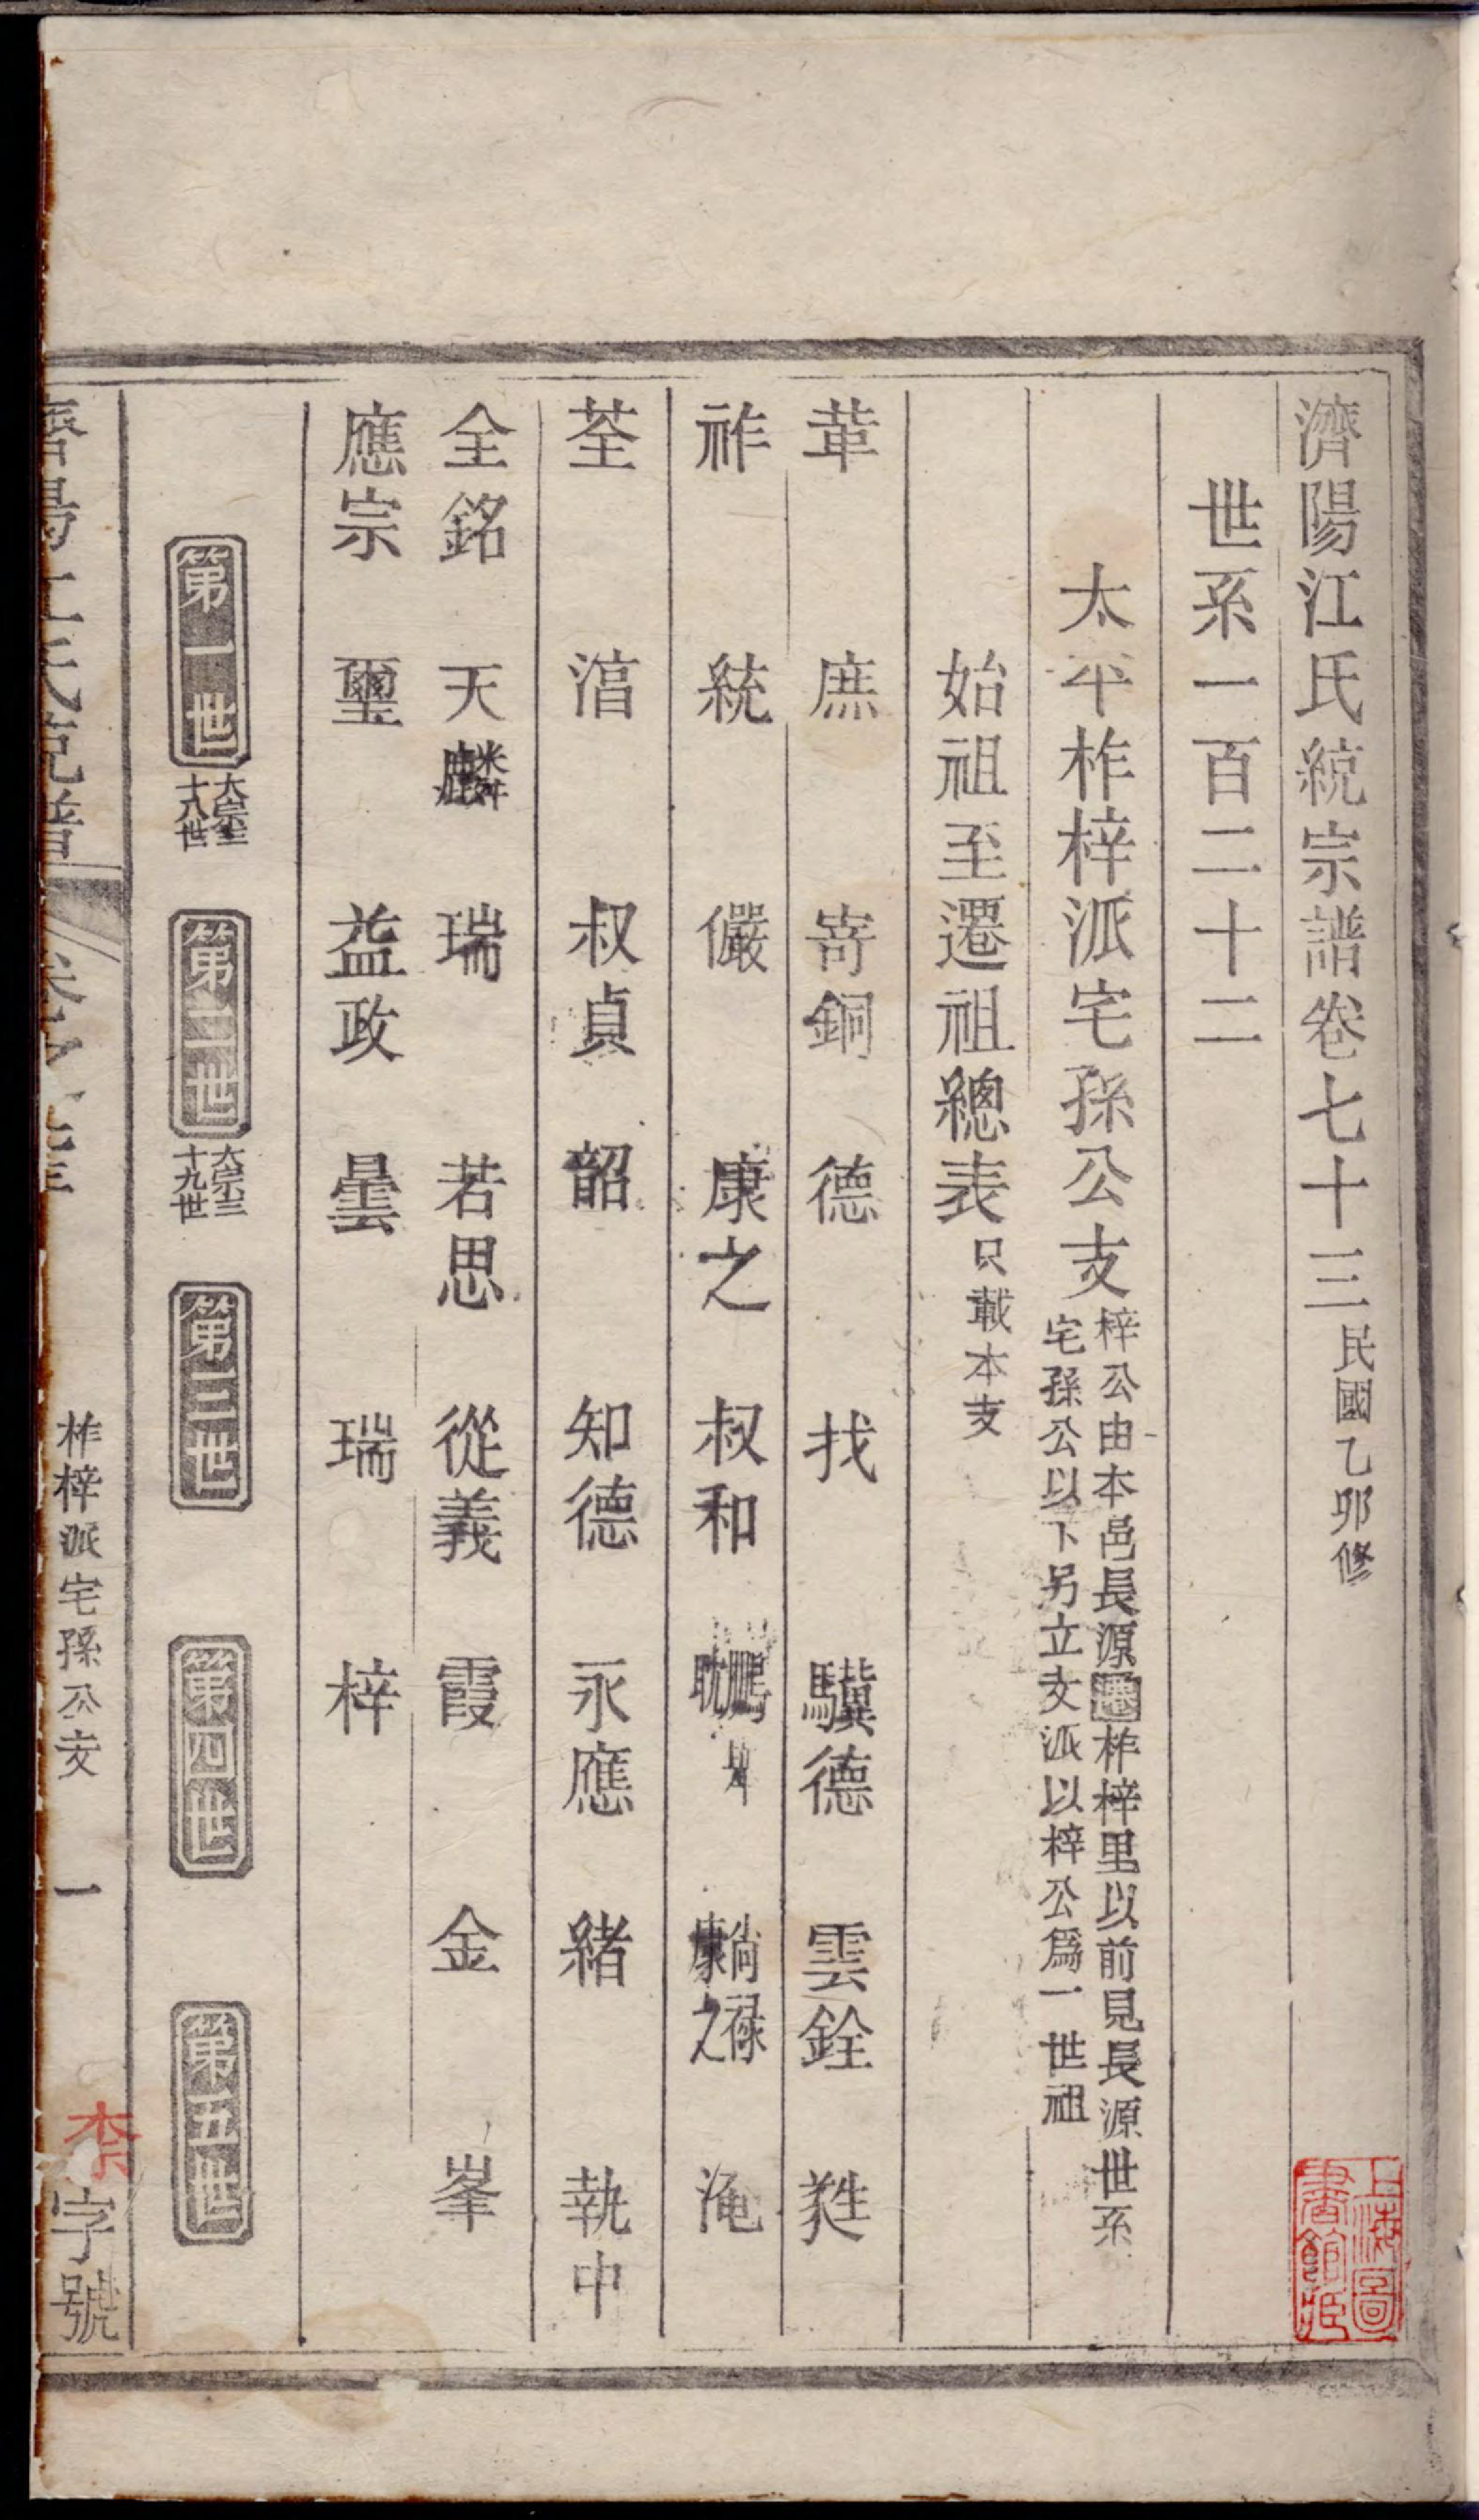 濟陽江氏統宗譜卷七十三 民國乙卯修
世系一百二十二
太平柞梓派宅孫公支 梓公由本邑長源遷柞梓里以前見長源世系
宅孫公以下另立支派以梓公爲一世祖
始祖至遷祖總表 只載本支
葦 庶 嵜銅 德 找 驥德 雲銓 甤
祚 統 儼 康之 叔和 鵬 耽 尙祿 康之 淹
荃 湇 叔貞 韶 知德 永應 緒 執中
全銘 天麟 瑞 若思 從義 霞 金 峯
應宗 璽 益政 曇 瑞 梓
第一世 大宗三十八世
第二世 大宗三十九世
第三世
第四世
第五世
柞梓派宅孫公支 一
字號
上海圖書館藏